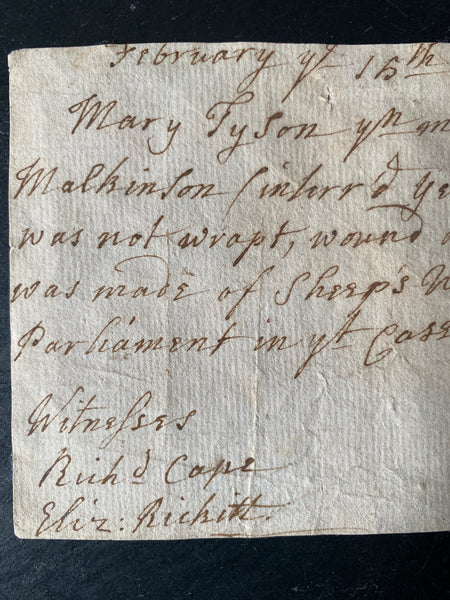 February yͤ 15th
Mary Tyson yn m
Malkinson (interr'd Ye
was not wrapt, wound
was made of Sheep's W
Parliament in yt Case
Witnesses
Richd Cape
Eliz: Rickitt.